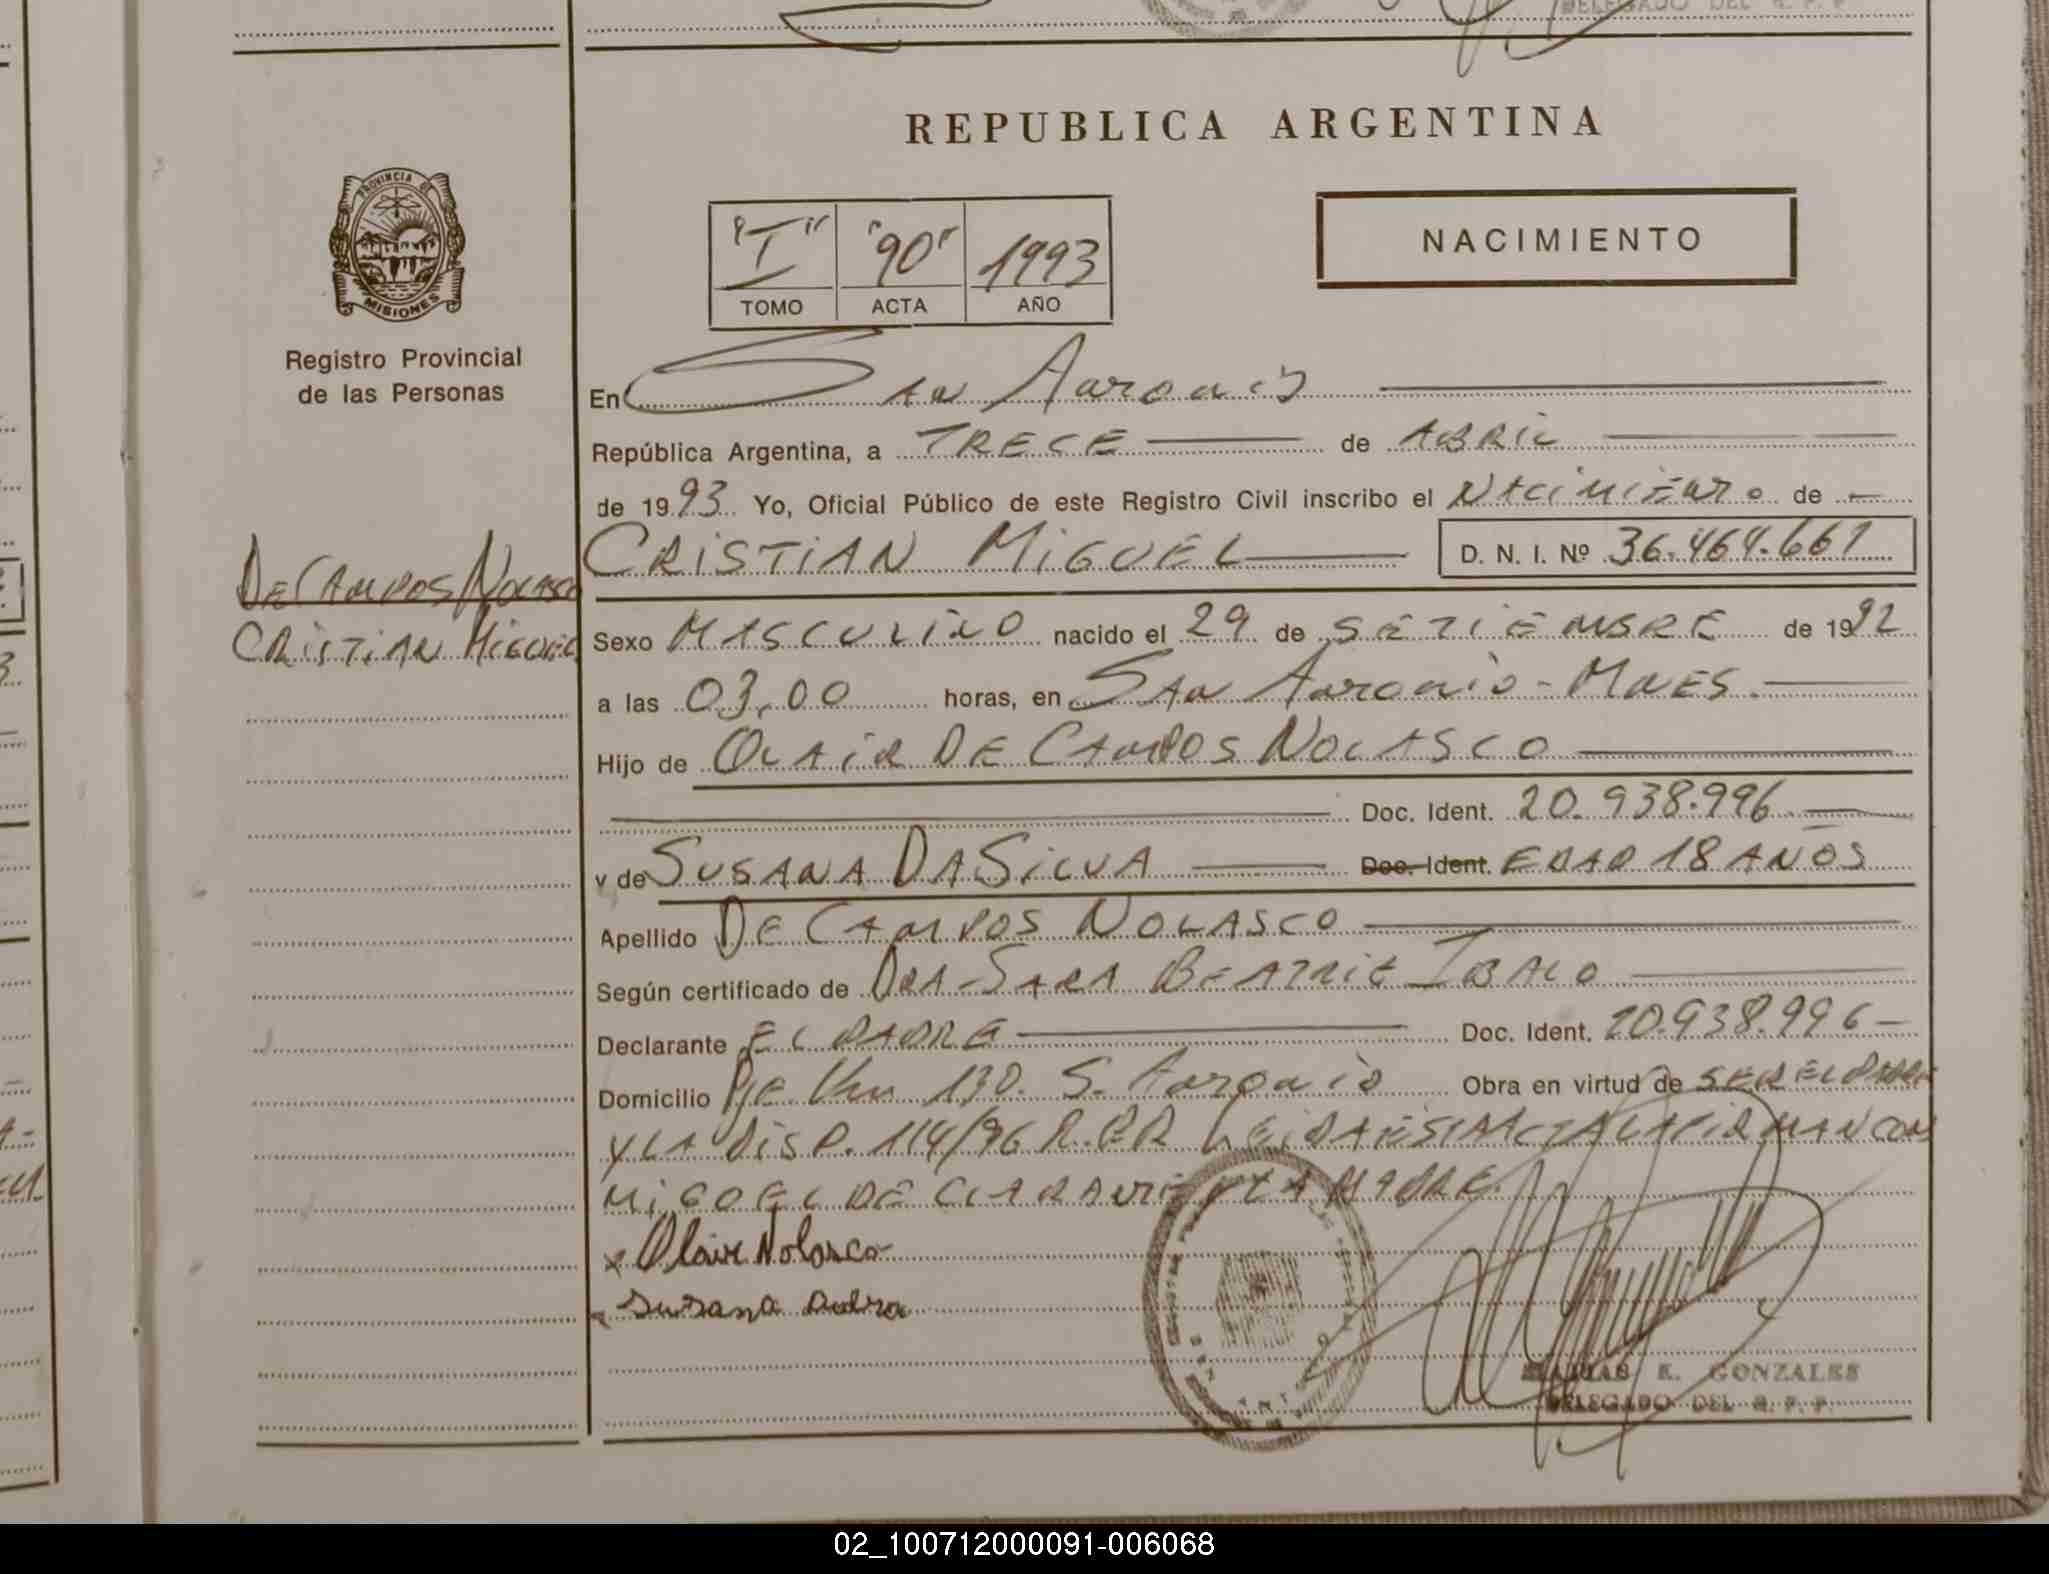 DELEGADO DEL R. P. P
REPUBLICA ARGENTINA
PROVINCIA DE
MISIONES
Registro Provincial
de las Personas
"I" "90" 1993
TOMO ACTA AÑO
NACIMIENTO
En San Antonio
República Argentina, a TRECE de ABRIL
de 1993 Yo, Oficial Público de este Registro Civil inscribo el NACIMIENTO de
DE CAMPOS NOLASCO
CRISTIAN MIGUEL
CRISTIAN MIGUEL D. N. I. Nº 36.464.661
Sexo MASCULINO nacido el 29 de SETIEMBRE de 1992
a las 03,00 horas, en SAN Antonio - MNES.
Hijo de OLAIR DE CAMPOS NOLASCO
Doc. Ident. 20.938.996
y de SUSANA DA SILVA Doc. Ident. EDAD 18 AÑOS
Apellido DE CAMPOS NOLASCO
Según certificado de DRA SARA BEATRIZ
Declarante EL PADRE Doc. Ident. 20.938.996
Domicilio 130. S. Antonio Obra en virtud de SER EL PADRE
Y LA DISP. 114/96 R.P.P. LEIDA ESTA ACTA LA FIRMAN CON
MIGO EL DECLARANTE Y LA MADRE.
x Olair Nolasco
Susana
GONZALES
DELEGADO DEL R. P. P.
02_100712000091-006068